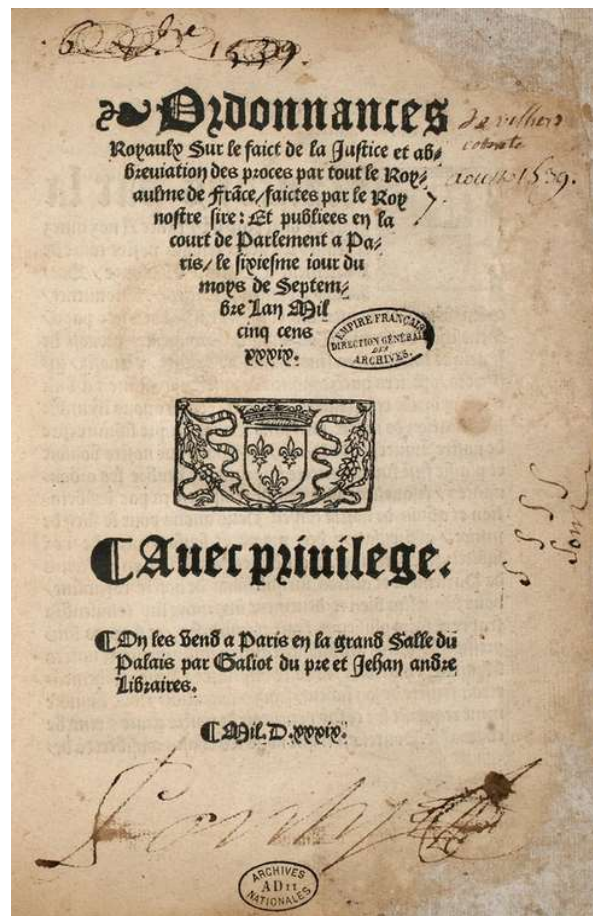 6 7bre 1539.
Ordonnances
Royaulx Sur le faict de la Justice et ab⸗
breuiation des proces par tout le Roy⸗
aulme de Frãce/ faictes par le Roy
nostre sire: Et publiees en la
court de Parlement a Pa⸗
ris/ le sixiesme iour du
moys de Septem⸗
bre Lan Mil
cinq cens
xxxix.
de villers
coterets
aoust 1539.
EMPIRE FRANÇAIS
DIRECTION GÉNÉRALE
DES
ARCHIVES.
¶ Auec priuilege.
¶ On les vend a Paris en la grand Salle du
Palais par Galiot du pre et Jehan andre
Libraires.
¶ Mil. D. xxxix.
ARCHIVES
AD II
NATIONALES